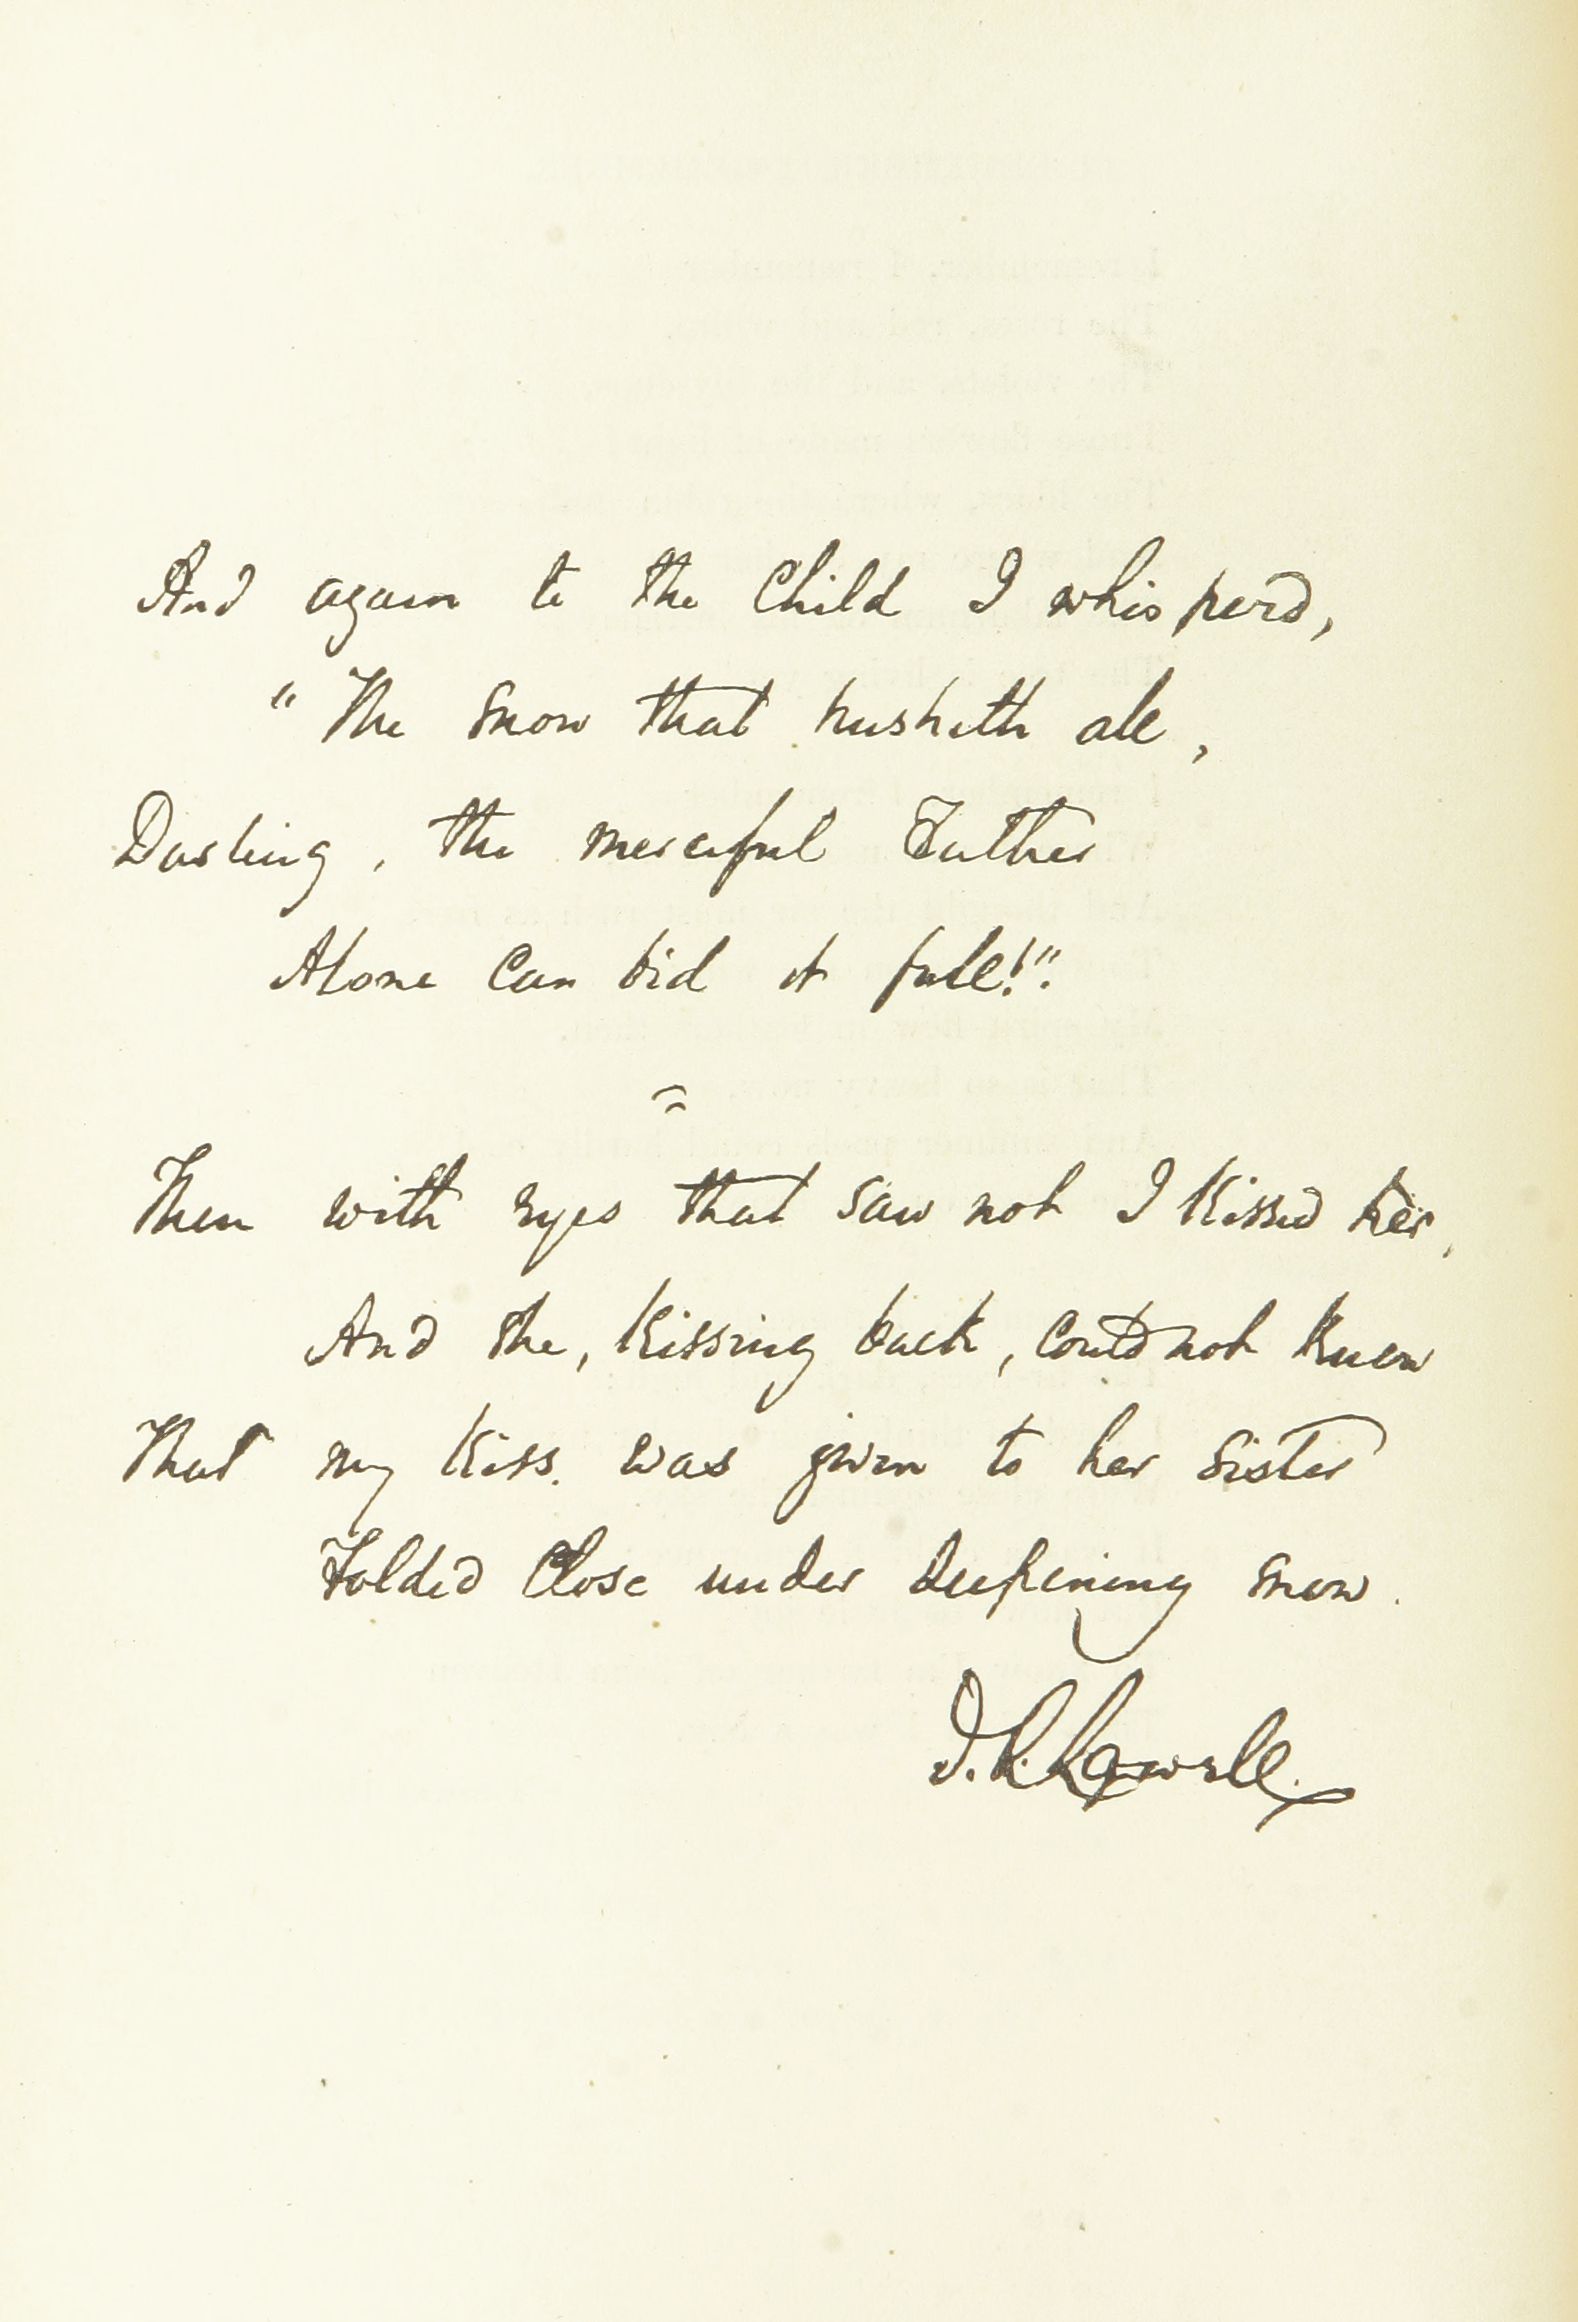 And again to the Child I whisperd,
"The Snow that husheth all,
Darling, the merciful Father
Alone Can bid it fall!".
Then with eyes that saw not I Kissed her,
And She, Kissing back, Could not Know
That my Kiss was given to her Sister
Folded Close under deepening snow.
J. R. Lowell.